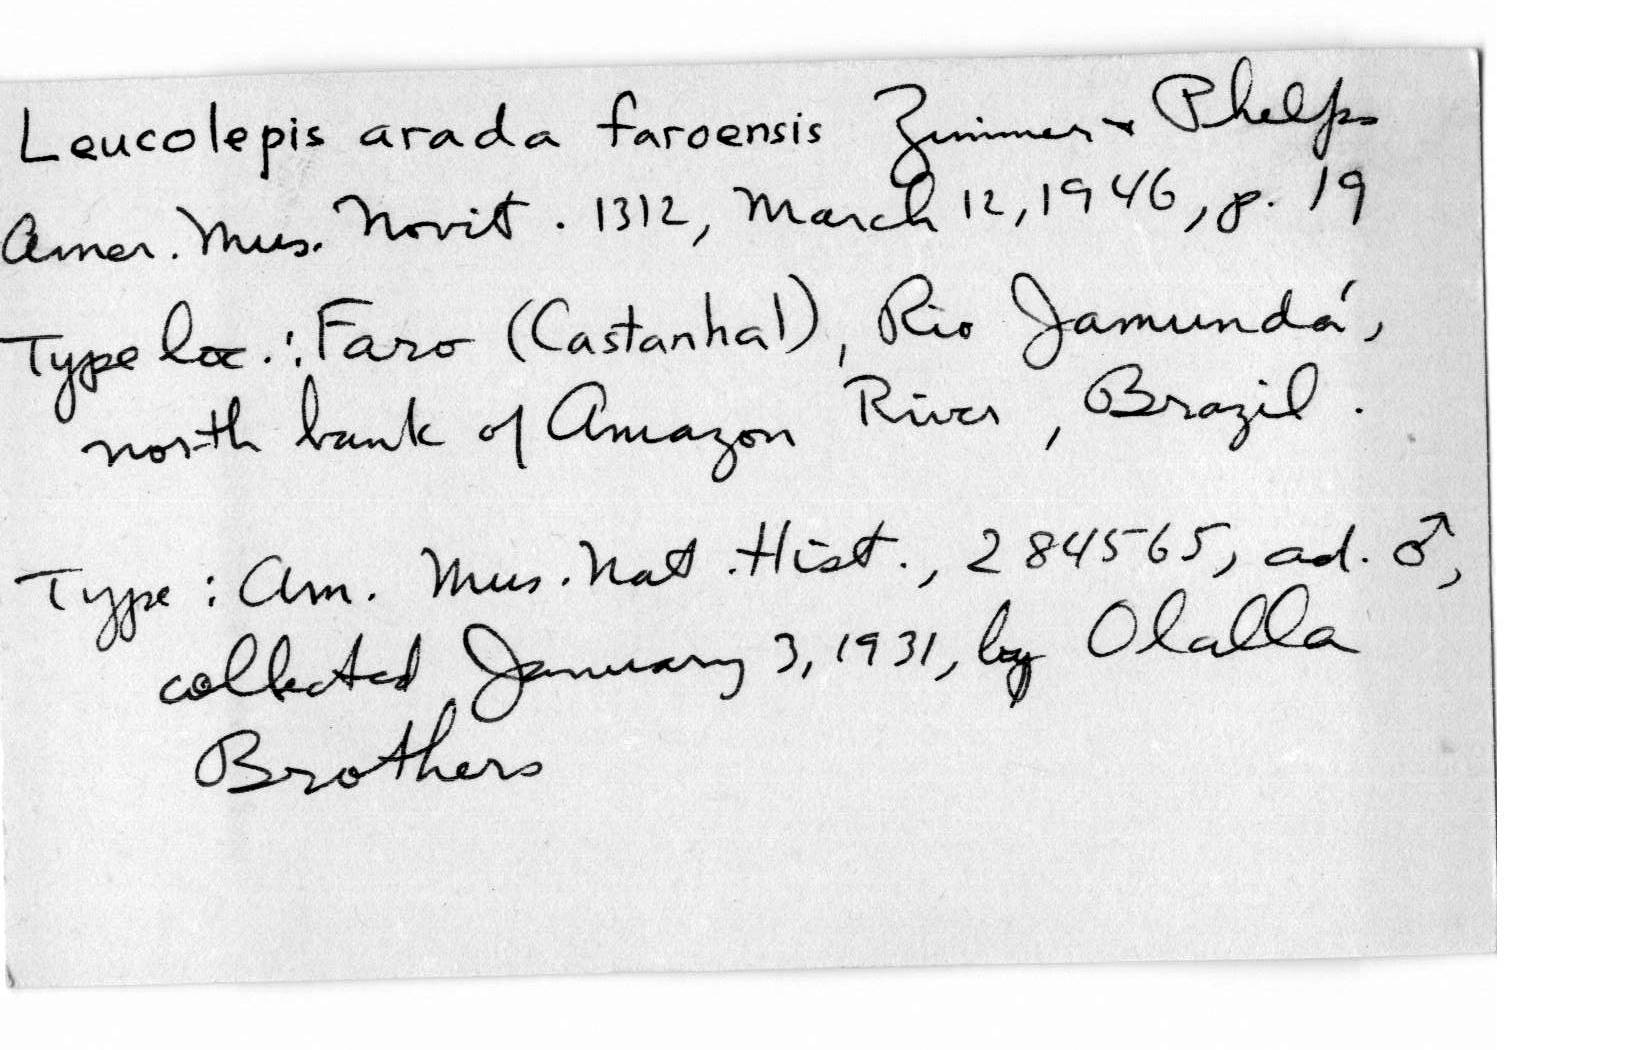 Leucolepis arada faroensis Zimmer & Phelps
Amer. Mus. Novit. 1312, March 12, 1946, p. 19
Type loc.: Faro (Castanhal), Rio Jamundá,
north bank of Amazon River, Brazil.
Type: Am. Mus. Nat. Hist., 284565, ad. ♂,
collected January 3, 1931, by Olalla
Brothers